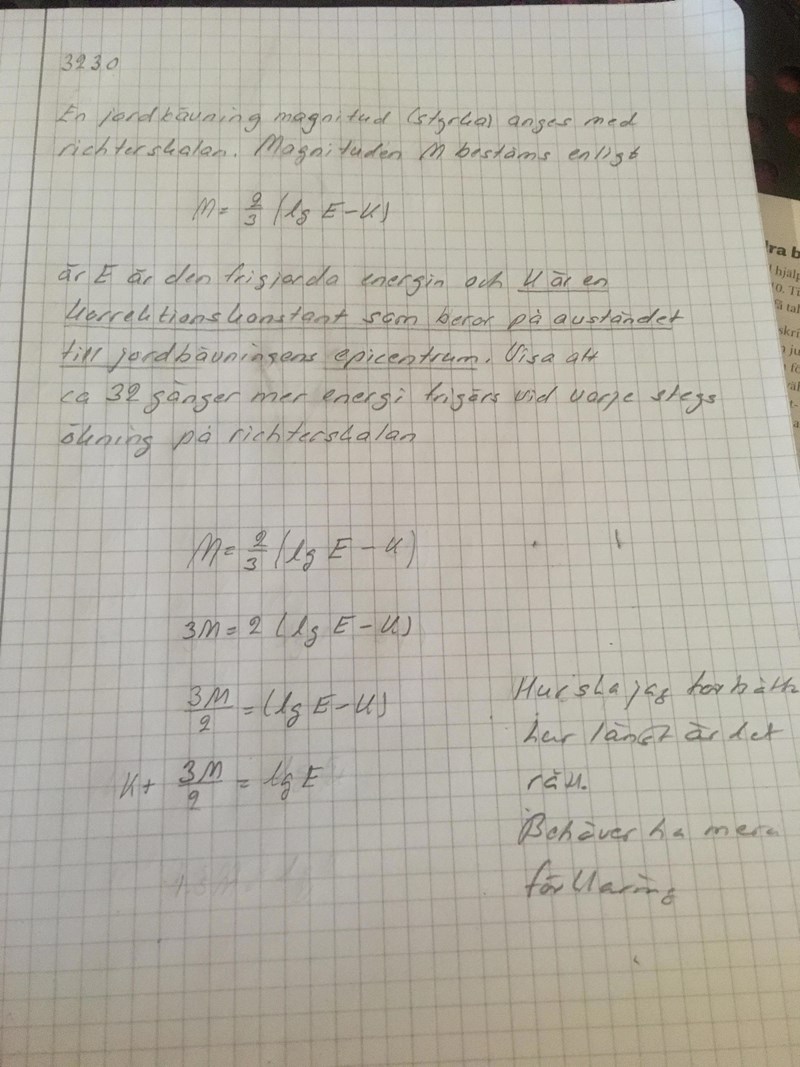 3230
En jordbävning magnitud (styrka) anges med
richterskalan. Magnituden M bestäms enligt
M = 2/3 (lg E - K)
är E är den frigjorda energin och K är en
korrektionskonstant som beror på avståndet
till jordbävningens epicentrum. Visa att
ca 32 gånger mer energi frigörs vid varje stegs
ökning på richterskalan
M = 2/3 (lg E - K)
3M = 2 (lg E - K)
3M/2 = (lg E - K)
K + 3M/2 = lg E
Hur ska jag
här långt är det
rätt.
Behöver ha mera
förklaring
ra b
hjälp
0. Ti
tal
skri